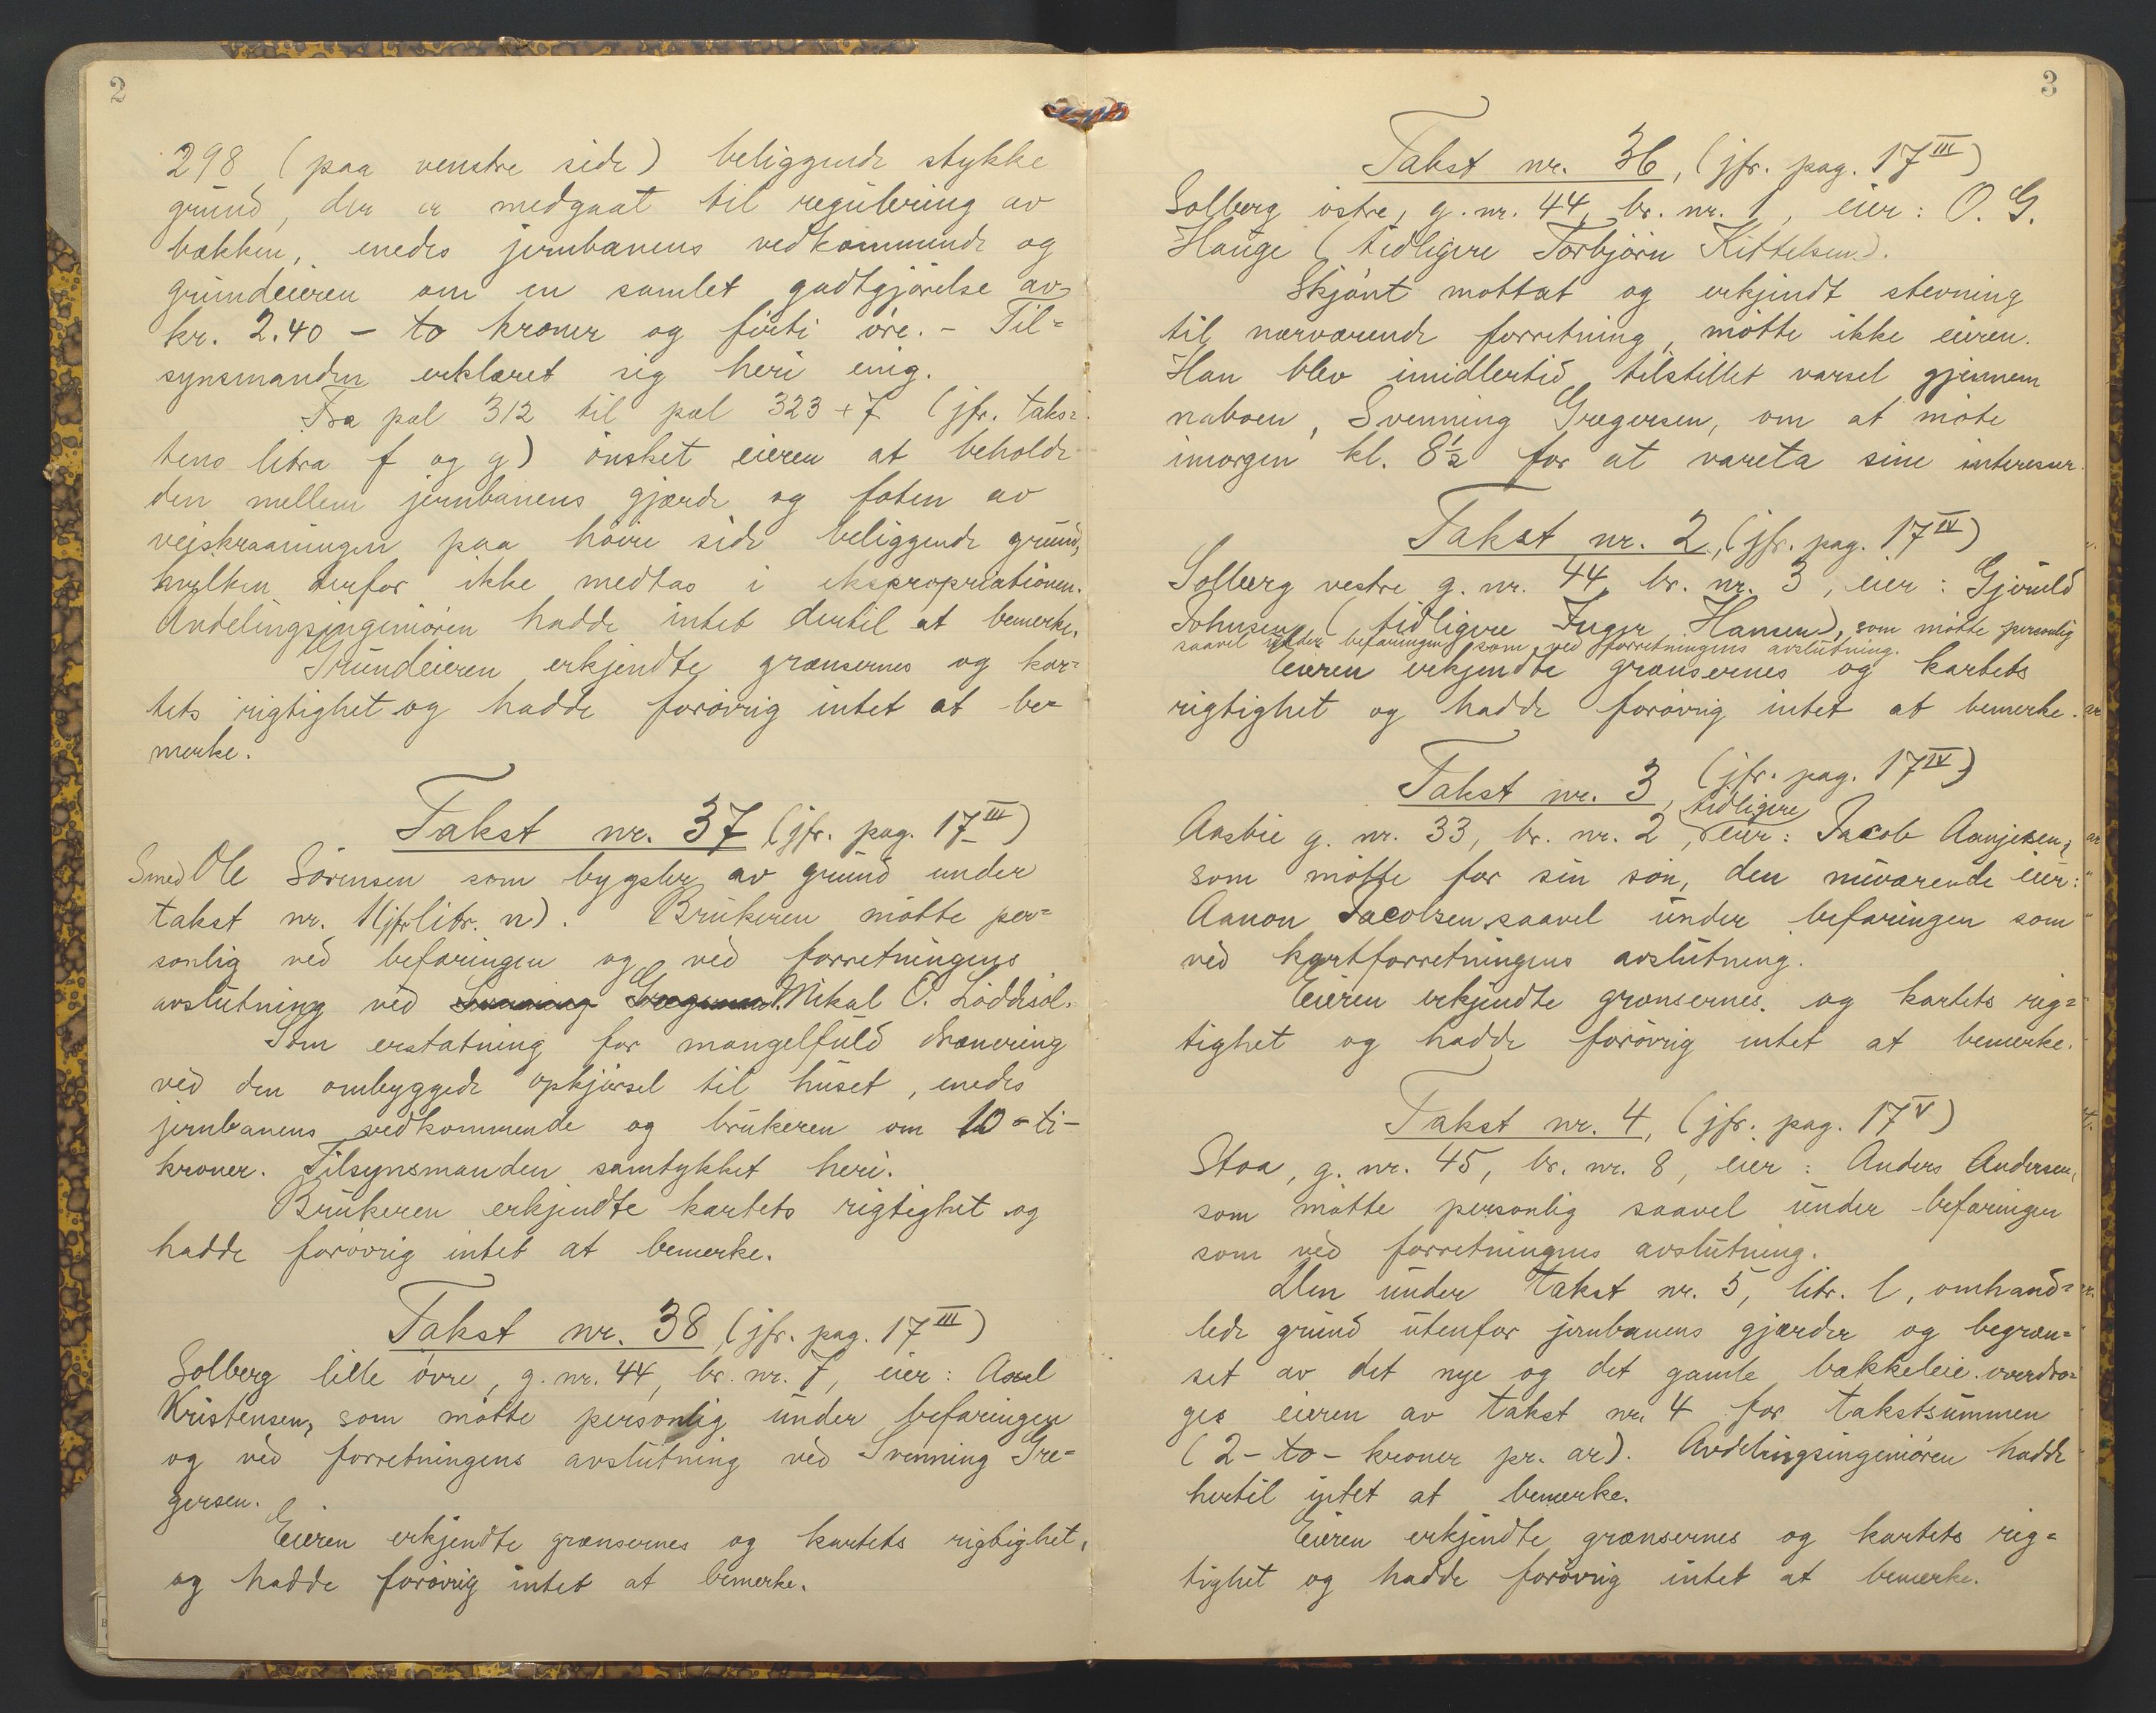 2
298 (paa venstre side) beliggende stykke
grund, der er medgaat til regulering av
bækken, enedes jernbanens vedkommende og
grundeieren om en samlet godtgjörelse av
kr. 2.40 - to kroner og förti öre. - Til=
synsmanden erklæret sig heri enig.
Fra pæl 312 til pæl 323 + 7 (jfr. taks=
tens litra f og g) önsket eieren at beholde
den mellem jernbanens gjærde og foten av
veiskraaningen paa höire side beliggende grund,
hvilken derfor ikke medtas i ekspropriationen.
Avdelingsingeniören hadde intet dertil at bemerke.
Grundeieren erkjendte grænsernes og kar=
tets rigtighet og hadde forövrig intet at be=
merke.
Takst nr. 37 (jfr. pag. 17 III)
Smed Ole Sörensen som bygsler av grund under
takst nr. 1 (jfr litr. n). Brukeren mötte per=
sonlig ved befaringen og ved forretningens
avslutning ved Svenning Gregersen. Mikal O. Löddesöl.
Som erstatning for mangelfuld drænering
ved den ombyggede opkjörsel til huset, enedes
jernbanens vedkommende og brukeren om 10 - ti -
kroner. Tilsynsmanden samtykket heri.
Brukeren erkjendte kartets rigtighet og
hadde forövrig intet at bemerke.
Takst nr. 38 (jfr. pag. 17 III)
Solberg lille övre, g. nr. 44, br. nr. 7, eier: Assel
Kristensen, som mötte personlig under befaringen
og ved forretningens avslutning ved Svenning Gre=
gersen.
Eieren erkjendte grænsernes og kartets rigtighet,
og hadde forövrig intet at bemerke.
3
Takst nr. 36, (jfr. pag. 17 III)
Solberg östre, g. nr. 44, br. nr. 1, eier: O. G.
Hauge (tidligere Torbjörn Kittelsen).
Skjönt mottat og erkjendt stevning
til nærværende forretning, mötte ikke eieren.
Han blev imidlertid tilstillet varsel gjennem
naboen, Svenning Gregersen, om at möte
imorgen kl. 8½ for at vareta sine interesser.
Takst nr. 2, (jfr. pag. 17 IV)
Solberg vestre g. nr. 44, br. nr. 3, eier: Gjeruld
Johnsen (tidligere Inger Hansen), som mötte personlig
saavel under befaringen som ved forretningens avslutning.
Eieren erkjendte grænsernes og kartets
rigtighet og hadde forövrig intet at bemerke.
Takst nr. 3, (jfr. pag. 17 IV)
tidligere
Aasbie g. nr. 33, br. nr. 2, eier: Jacob Aanjesen,
som mötte for sin sön, den nuværende eier:
Aanon Jacobsen, saavel under befaringen som
ved kartforretningens avslutning.
Eieren erkjendte grænsernes og kartets rig=
tighet og hadde forövrig intet at bemerke.
Takst nr. 4, (jfr. pag. 17 V)
Stoa, g. nr. 45, br. nr. 8, eier: Anders Andersen,
som mötte personlig saavel under befaringen
som ved forretningens avslutning.
Den under takst nr. 5, litr. l, omhand=
lede grund utenfor jernbanens gjærder og begræn=
set av det nye og det gamle bækkeleie overdra=
ges eieren av takst nr. 4 for takstsummen
(2 - to - kroner pr. ar). Avdelingsingeniören hadde
hertil intet at bemerke.
Eieren erkjendte grænsernes og kartets rig=
tighet og hadde forövrig intet at bemerke.